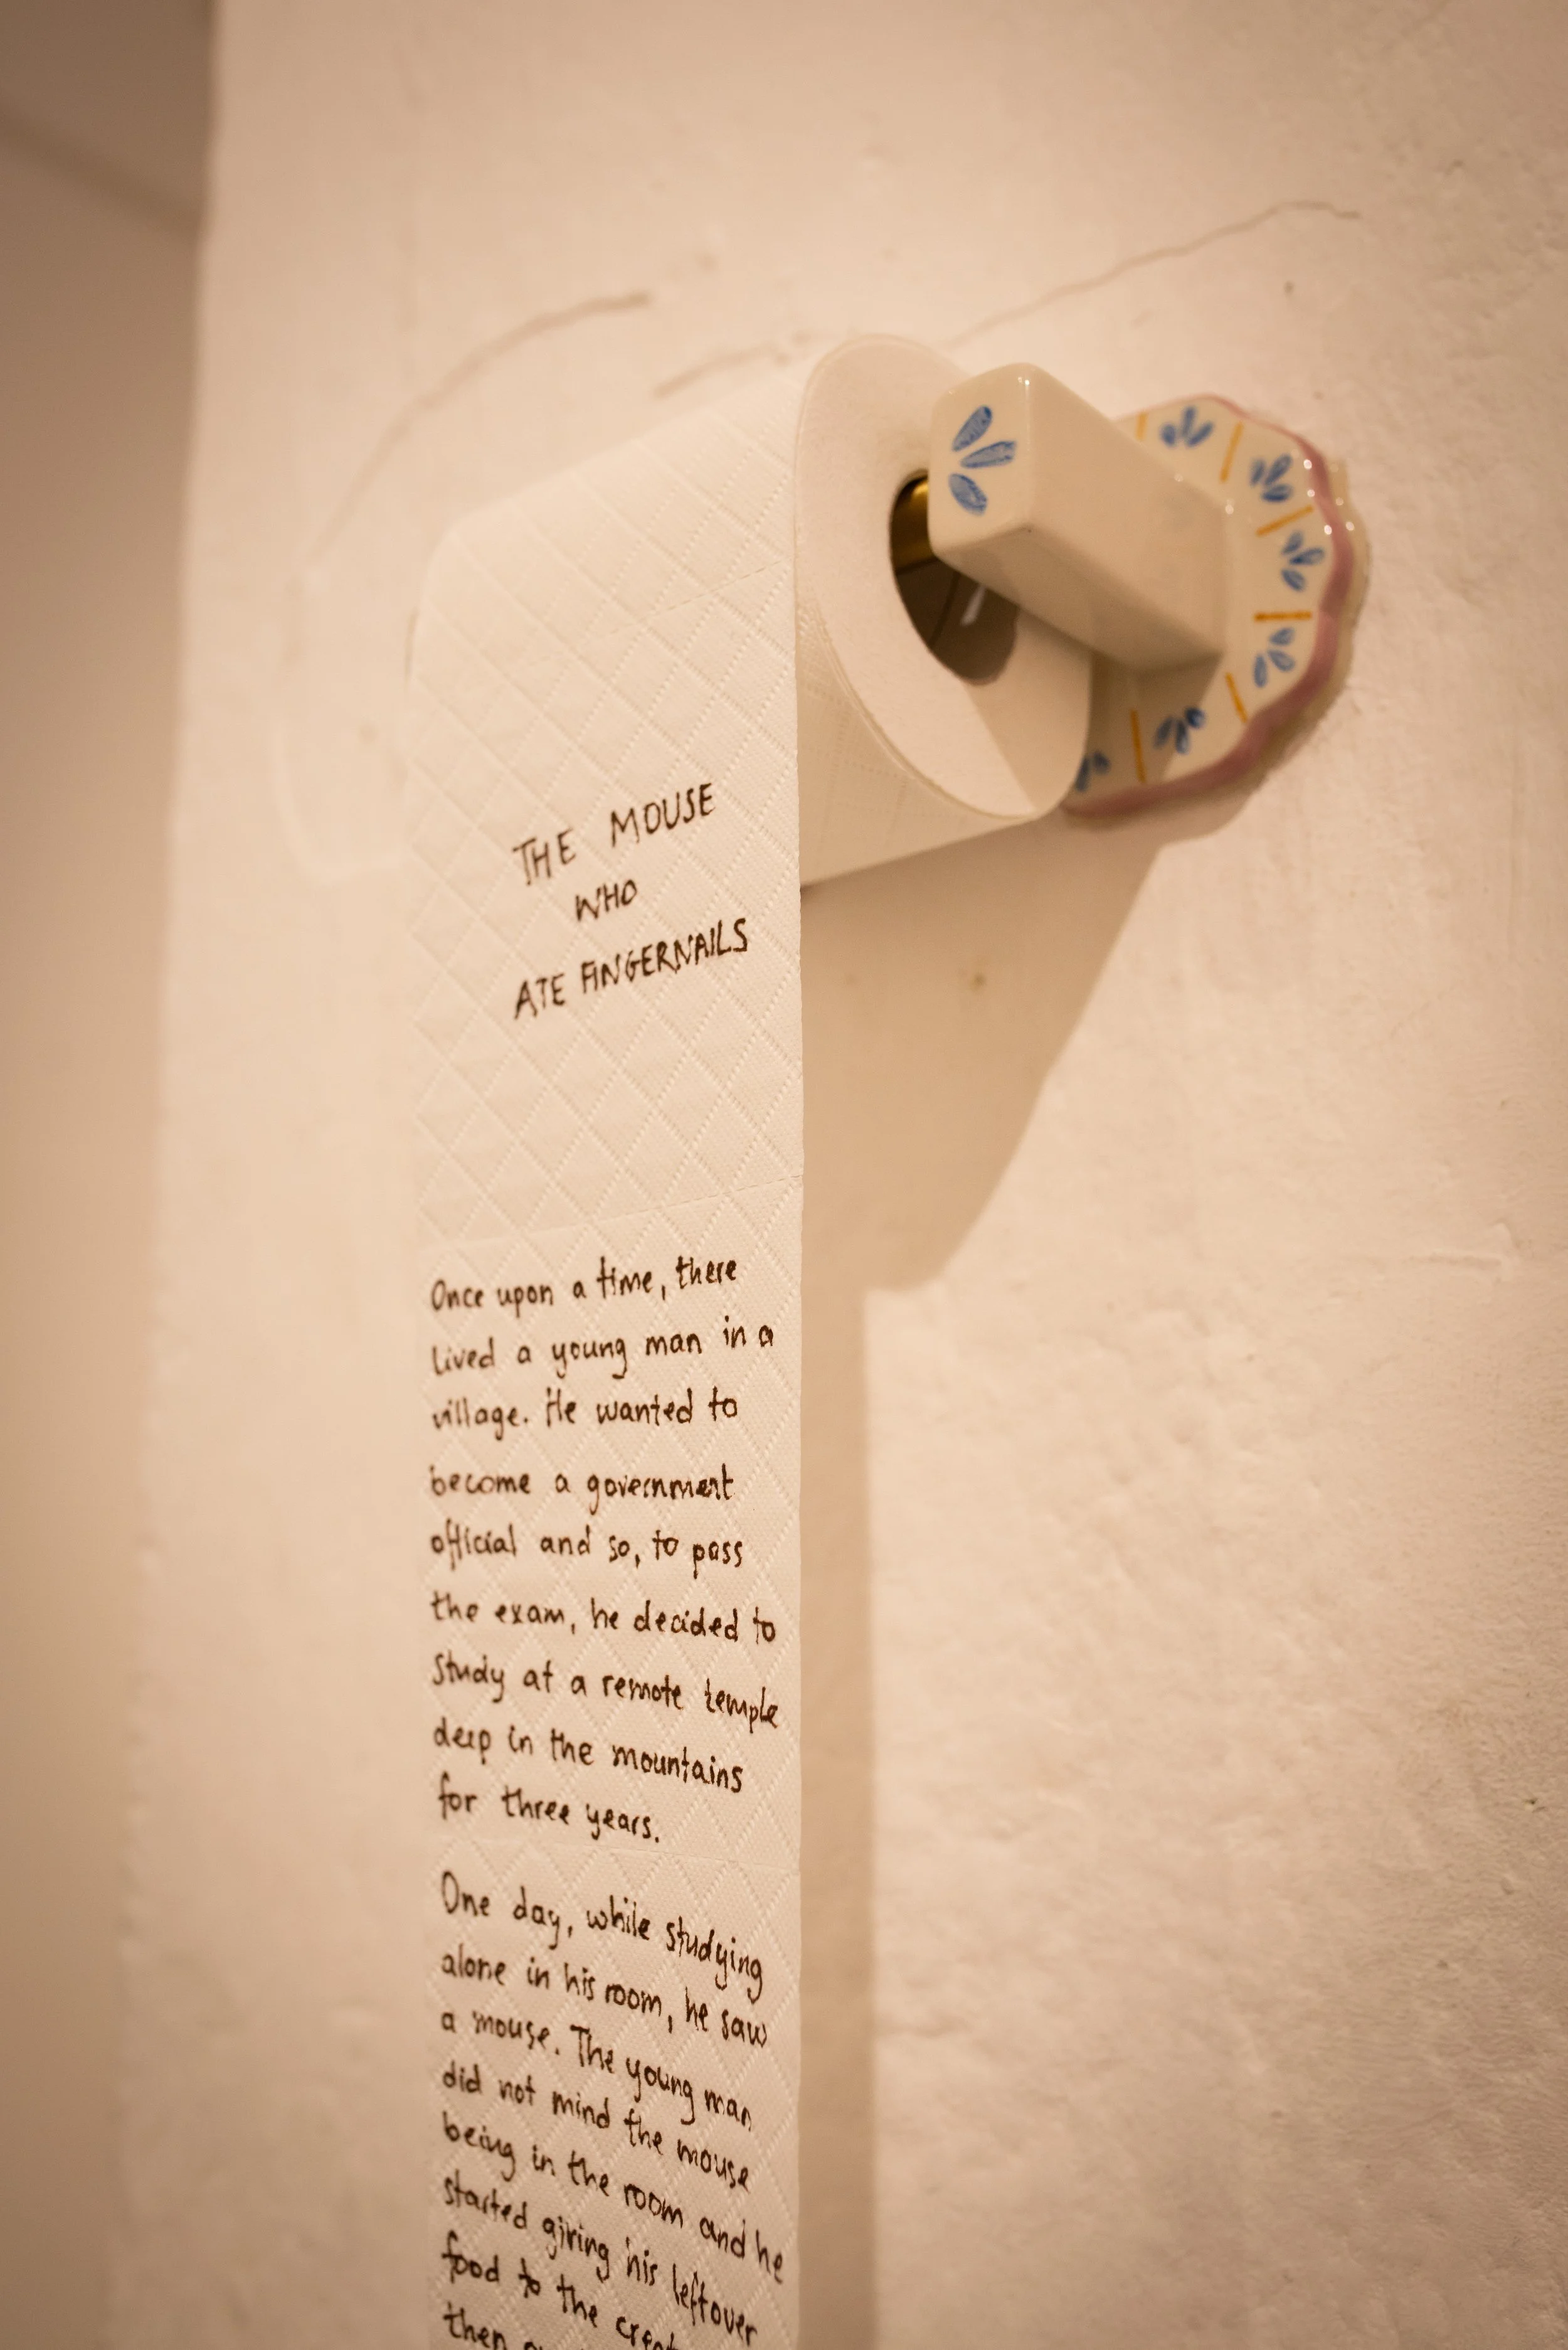 THE MOUSE
WHO
ATE FINGERNAILS
Once upon a time, there
lived a young man in a
village. He wanted to
become a government
official and so, to pass
the exam, he decided to
study at a remote temple
deep in the mountains
for three years.
One day, while studying
alone in his room, he saw
a mouse. The young man
did not mind the mouse
being in the room and he
started giving his leftover
food to the
then